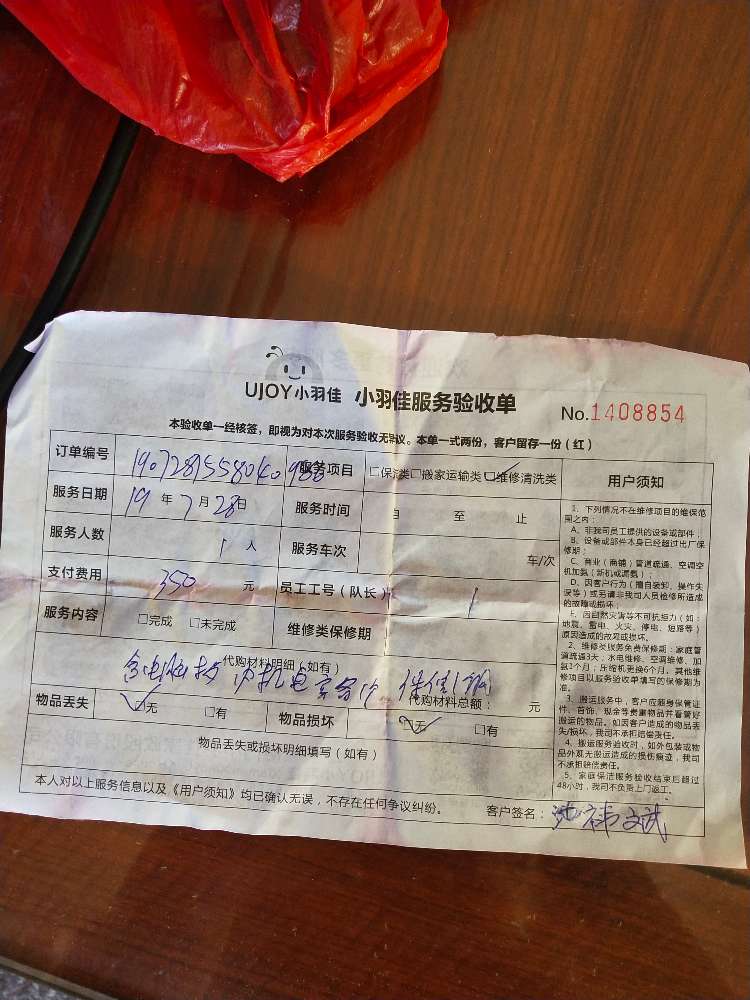 UJOY小羽佳 小羽佳服务验收单
No.1408854
本验收单一经核签，即视为对本次服务验收无异议。本单一式两份，客户留存一份（红）
订单编号
服务项目 □保洁类□搬家运输类☑维修清洗类
服务日期 19年7月28日 服务时间 至 止
服务人数 1人 服务车次 车/次
支付费用 350 元 员工工号（队长） 1
服务内容 □完成 □未完成 维修类保修期
代购材料明细（如有）
代购材料总额： 元
物品丢失 ☑无 □有 物品损坏 ☑无 □有
物品丢失或损坏明细填写（如有）
本人对以上服务信息以及《用户须知》均已确认无误，不存在任何争议纠纷。 客户签名：
用户须知
1、下列情况不在维修项目的维保范
围之内：
A、非我司员工提供的设备或部件；
B、设备或部件本身已经超过出厂保
修期；
C、商业（商铺）管道疏通、空调空
机加氨（新机或漏氨）
D、因客户行为（擅自装卸、操作失
误等）或另请非我司人员检修所造成
的故障或损坏；
E、因自然灾害等不可抗拒力（如：
地震、雷电、火灾、停电、短路等）
原因造成的故障或损坏。
2、维修类服务免费保修期：家庭管
道疏通3天，水电维修、空调维修、加
氨1个月；压缩机更换6个月，其他维
修项目以服务验收单填写的保修期为
准。
3、搬运服务中，客户应随身保管证
件、首饰、现金等贵重物品并看管好
搬运的物品。如因客户造成的物品丢
失/损坏，我司不承担赔偿责任。
4、搬运服务验收时，如外包装或物
品外观无搬运造成的损伤痕迹，我司
不承担赔偿责任。
5、家庭保洁服务验收结束后超过
48小时，我司不负责上门返工。